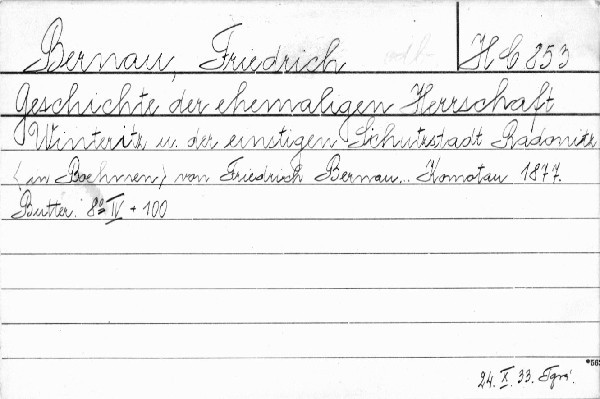 Bernau, Friedrich H C 853
Geschichte der ehemaligen Herrschaft
Winteritz u. der einstigen Schutzstadt Radonitz
(in Boehmen) von Friedrich Bernau... Komotau 1877.
Butter. 8º IV + 100
24. X. 33.